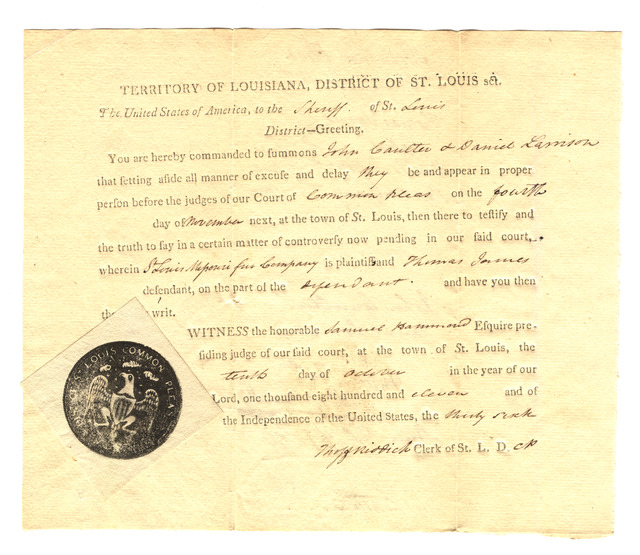 TERRITORY OF LOUISIANA, DISTRICT OF ST. LOUIS sct.
The United States of America, to the Sheriff of St. Louis
District—Greeting.
You are hereby commanded to summons John Coulter & Daniel Larrison
that ſetting aſide all manner of excuſe and delay they be and appear in proper
perſon before the judges of our Court of Common Pleas on the fourth
day of November next, at the town of St. Louis, then there to teſtify and
the truth to ſay in a certain matter of controverſy now pending in our ſaid court,
wherein St Louis Missouri fur Company is plaintiff and Thomas James
defendant, on the part of the defendant. and have you then
writ.
WITNESS the honorable Samuel Hammond Eſquire pre-
ſiding judge of our ſaid court, at the town of St. Louis, the
tenth day of October in the year of our
Lord, one thouſand eight hundred and eleven and of
the Independence of the United States, the thirty sixth
Thos F Riddick Clerk of St. L. D. CP
ST. LOUIS COMMON PLEA